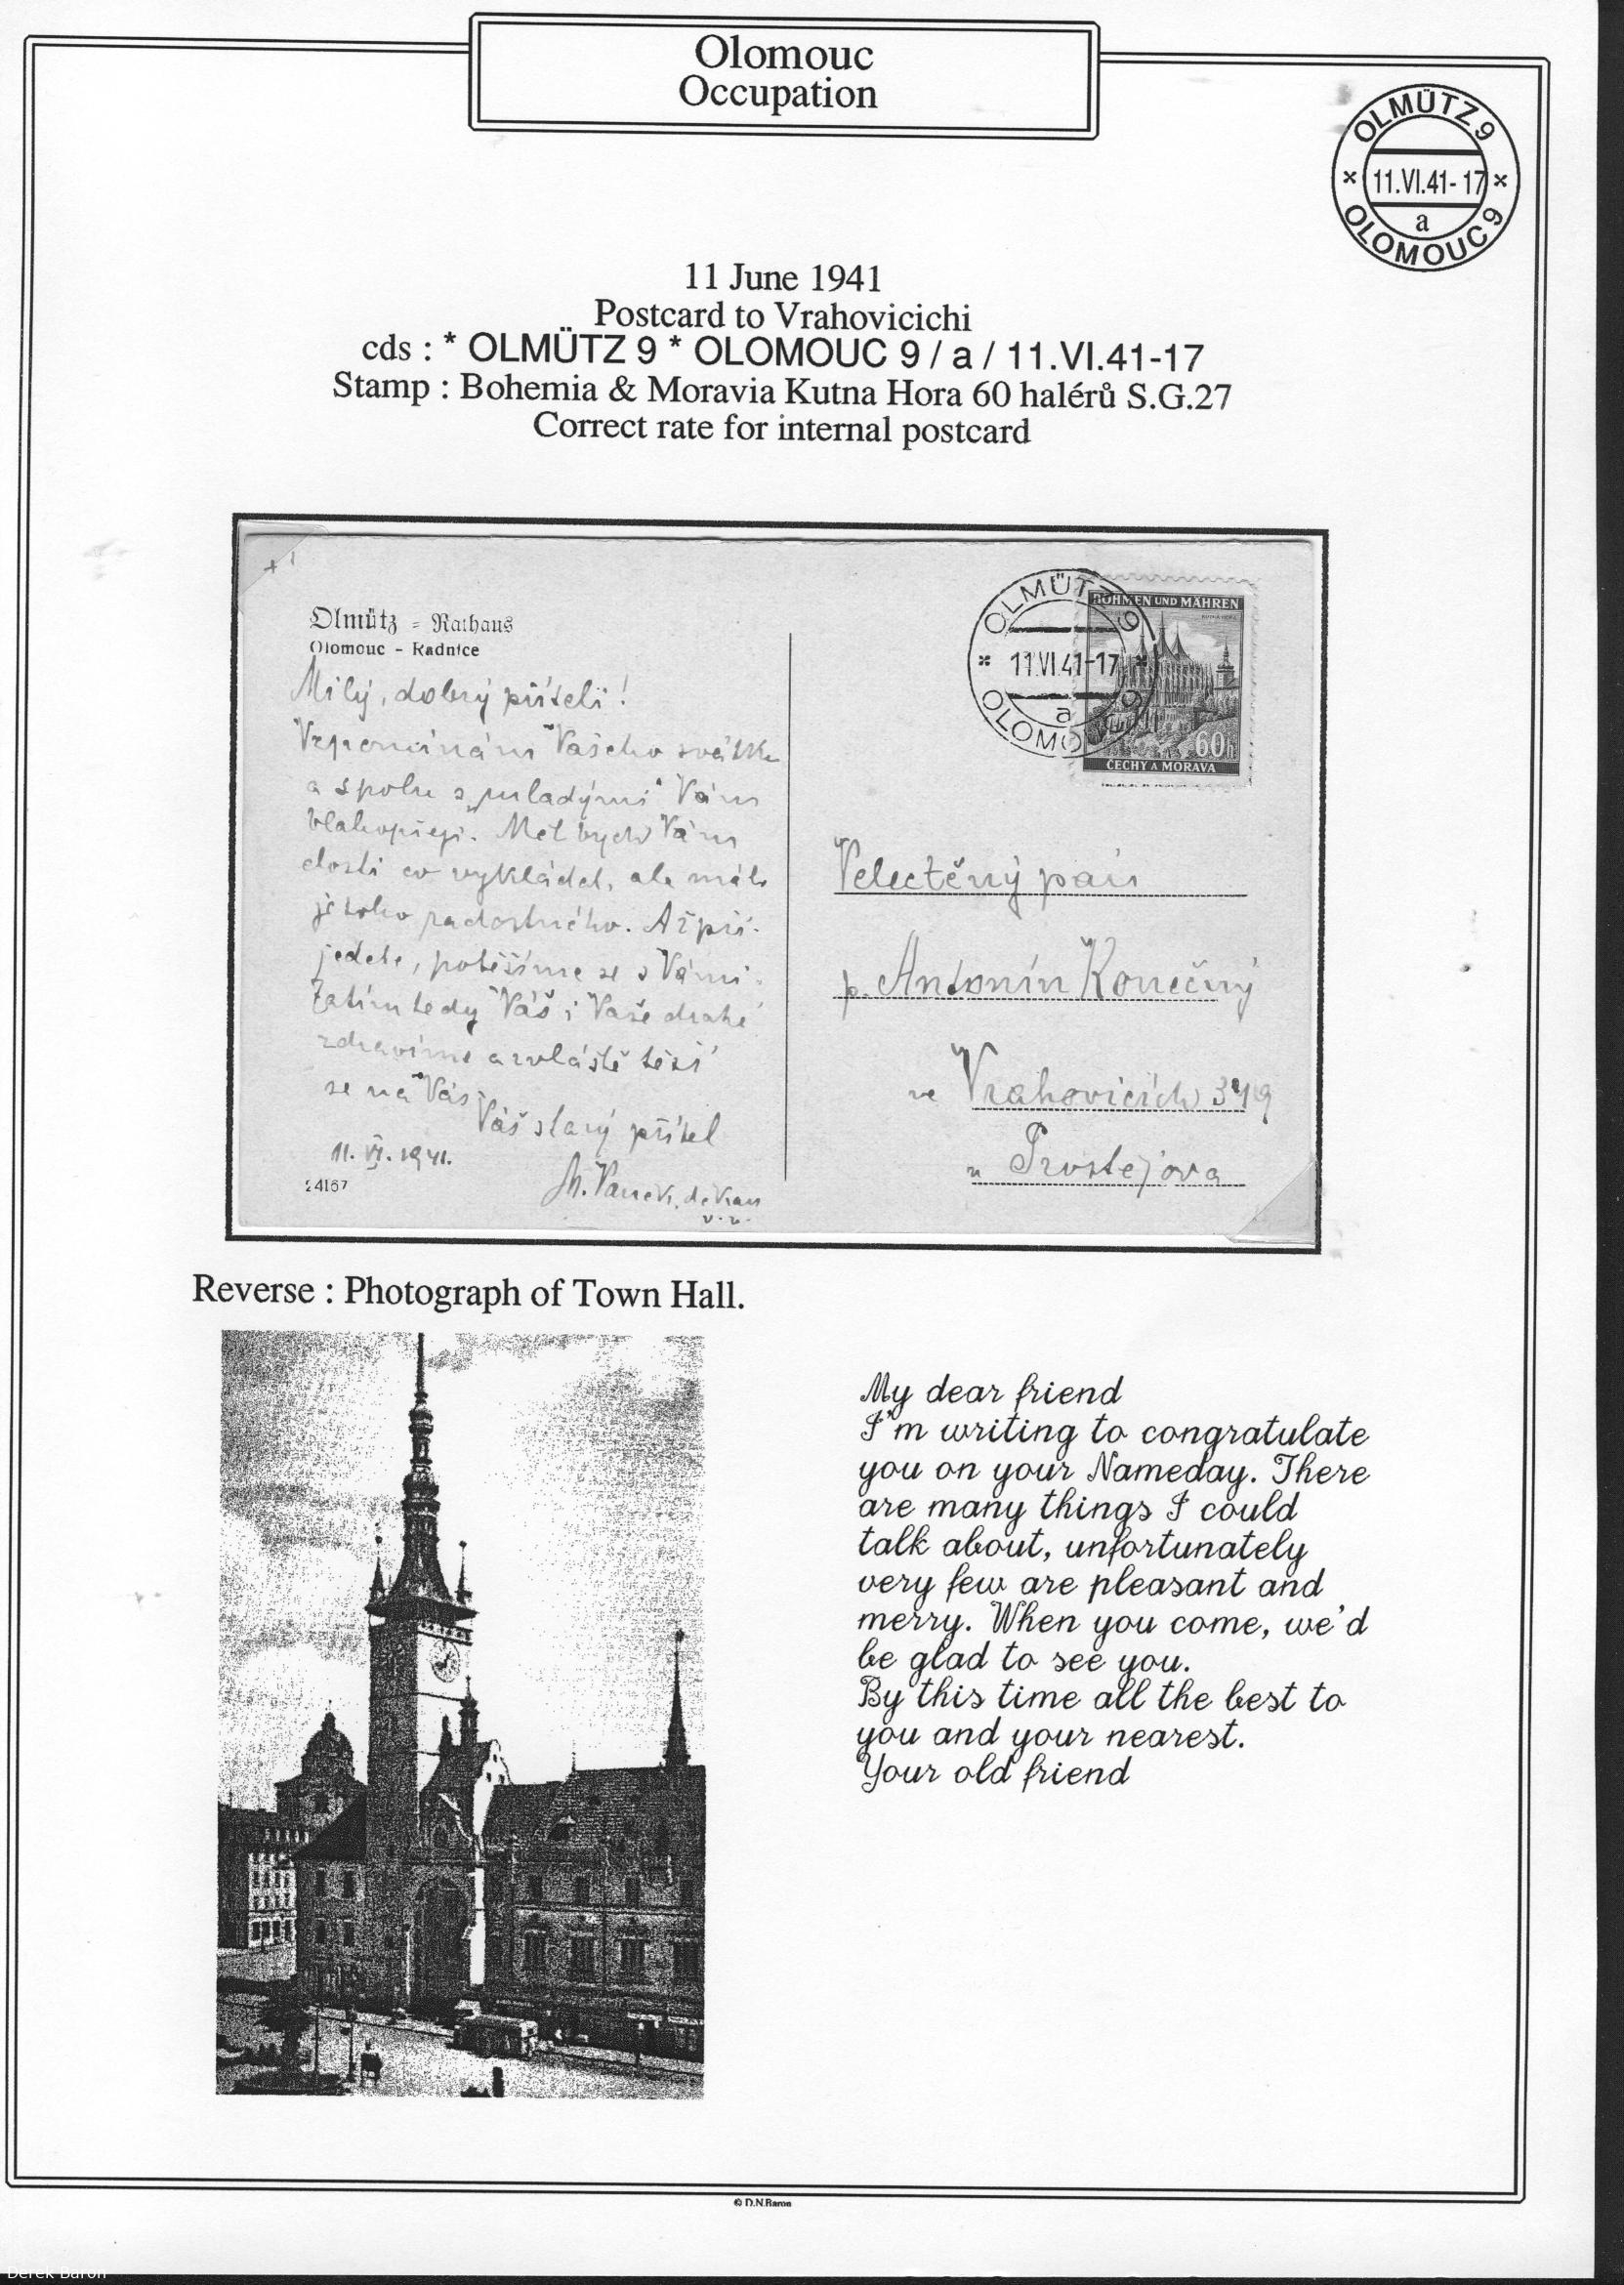 Olomouc
Occupation
OLMÜTZ 9
* 11.VI.41-17 *
a
OLOMOUC 9
11 June 1941
Postcard to Vrahovicichi
cds : * OLMÜTZ 9 * OLOMOUC 9 / a / 11.VI.41-17
Stamp : Bohemia & Moravia Kutna Hora 60 halérů S.G.27
Correct rate for internal postcard
Olmütz = Rathaus
Olomouc - Radnice
Milý, dobrý příteli!
Vzpomínám Vašeho svátku
a spolu s „mladými" Vám
blahopřeji. Měl bych Vám
dosti co vykládat, ale málo
je toho radostného. Až při-
jedete, potěšíme se s Vámi.
Zatím tedy Váš i Vaše drahé
zdravíme a zvláště těší
se na Vás
Váš starý přítel
11. VI. 1941.
24167
děkan
v. v.
OLMÜTZ 9
* 11.VI.41-17 *
a
OLOMOUC 9
BÖHMEN UND MÄHREN
60h
ČECHY A MORAVA
Velectěný pán
p. Antonín Konečný
ve Vrahovicích
u Prostějova
Reverse : Photograph of Town Hall.
My dear friend
I'm writing to congratulate
you on your Nameday. There
are many things I could
talk about, unfortunately
very few are pleasant and
merry. When you come, we'd
be glad to see you.
By this time all the best to
you and your nearest.
Your old friend
© D.N.Baron
Derek Baron